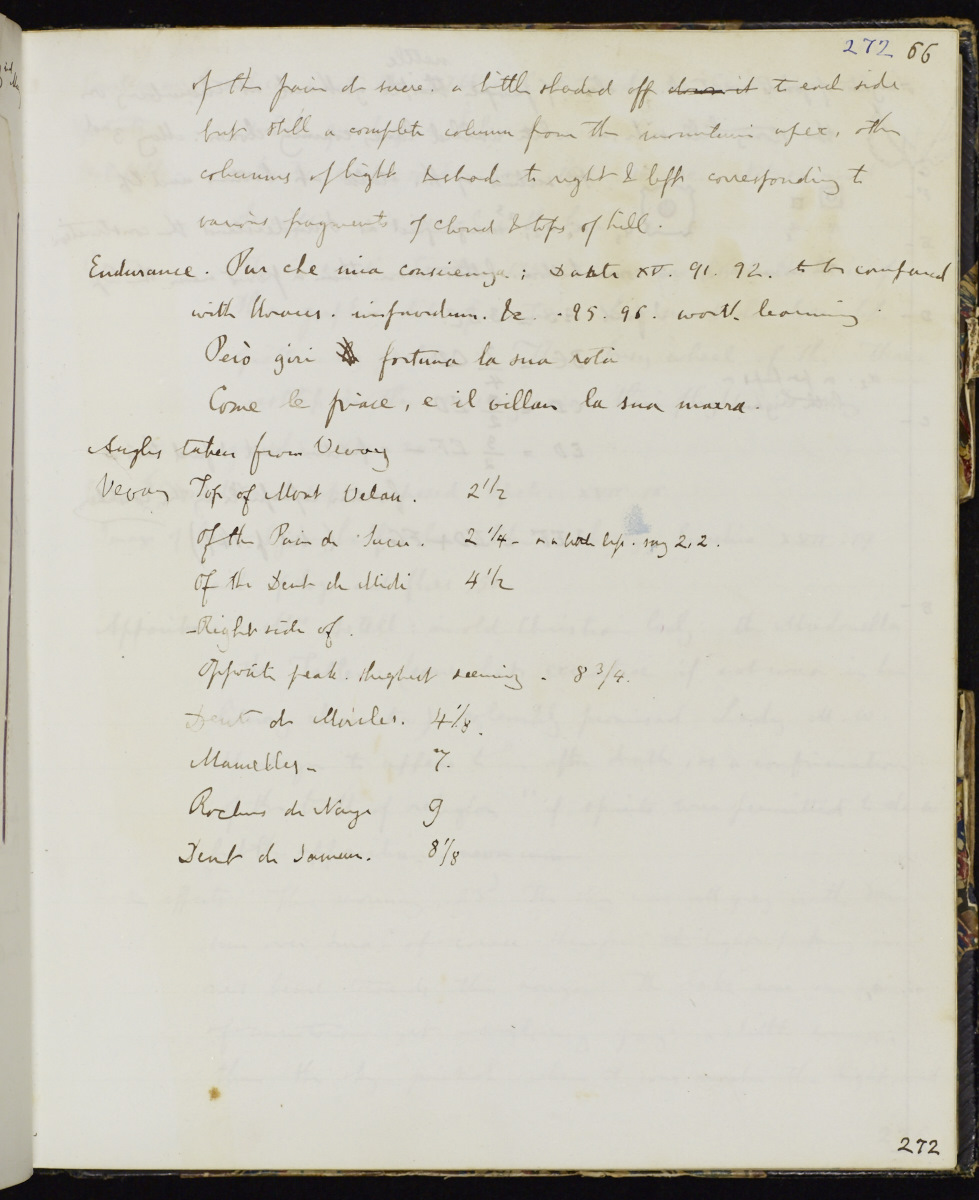 272 66
of the pain de sucre. a little shaded off down it to each side
but still a complete column from the mountain apex, other
columns of light & shade to right & left corresponding to
various fragments of cloud & tops of hill.
Endurance. Pur che mia conscienza; Dante XV. 91. 92. to be compared
with Horaces. &c. 95. 96. worth learning
Però giri fortuna la sua rota
Come le piace, e il villan la sua marra.
Angles taken from Vevay
Vevay Top of Mont Velan. 2 1/2
Of the Pain de Sucre. 2 1/4 - say 2,2.
Of the Dent de Midi 4 1/2
- Right side of.
Opposite peak. highest seeming - 8 3/4.
Dent de Morcles. 4 1/8.
Mamelles - 7.
Rochers de Naye 9
Dent de Jaman. 8 1/8
272